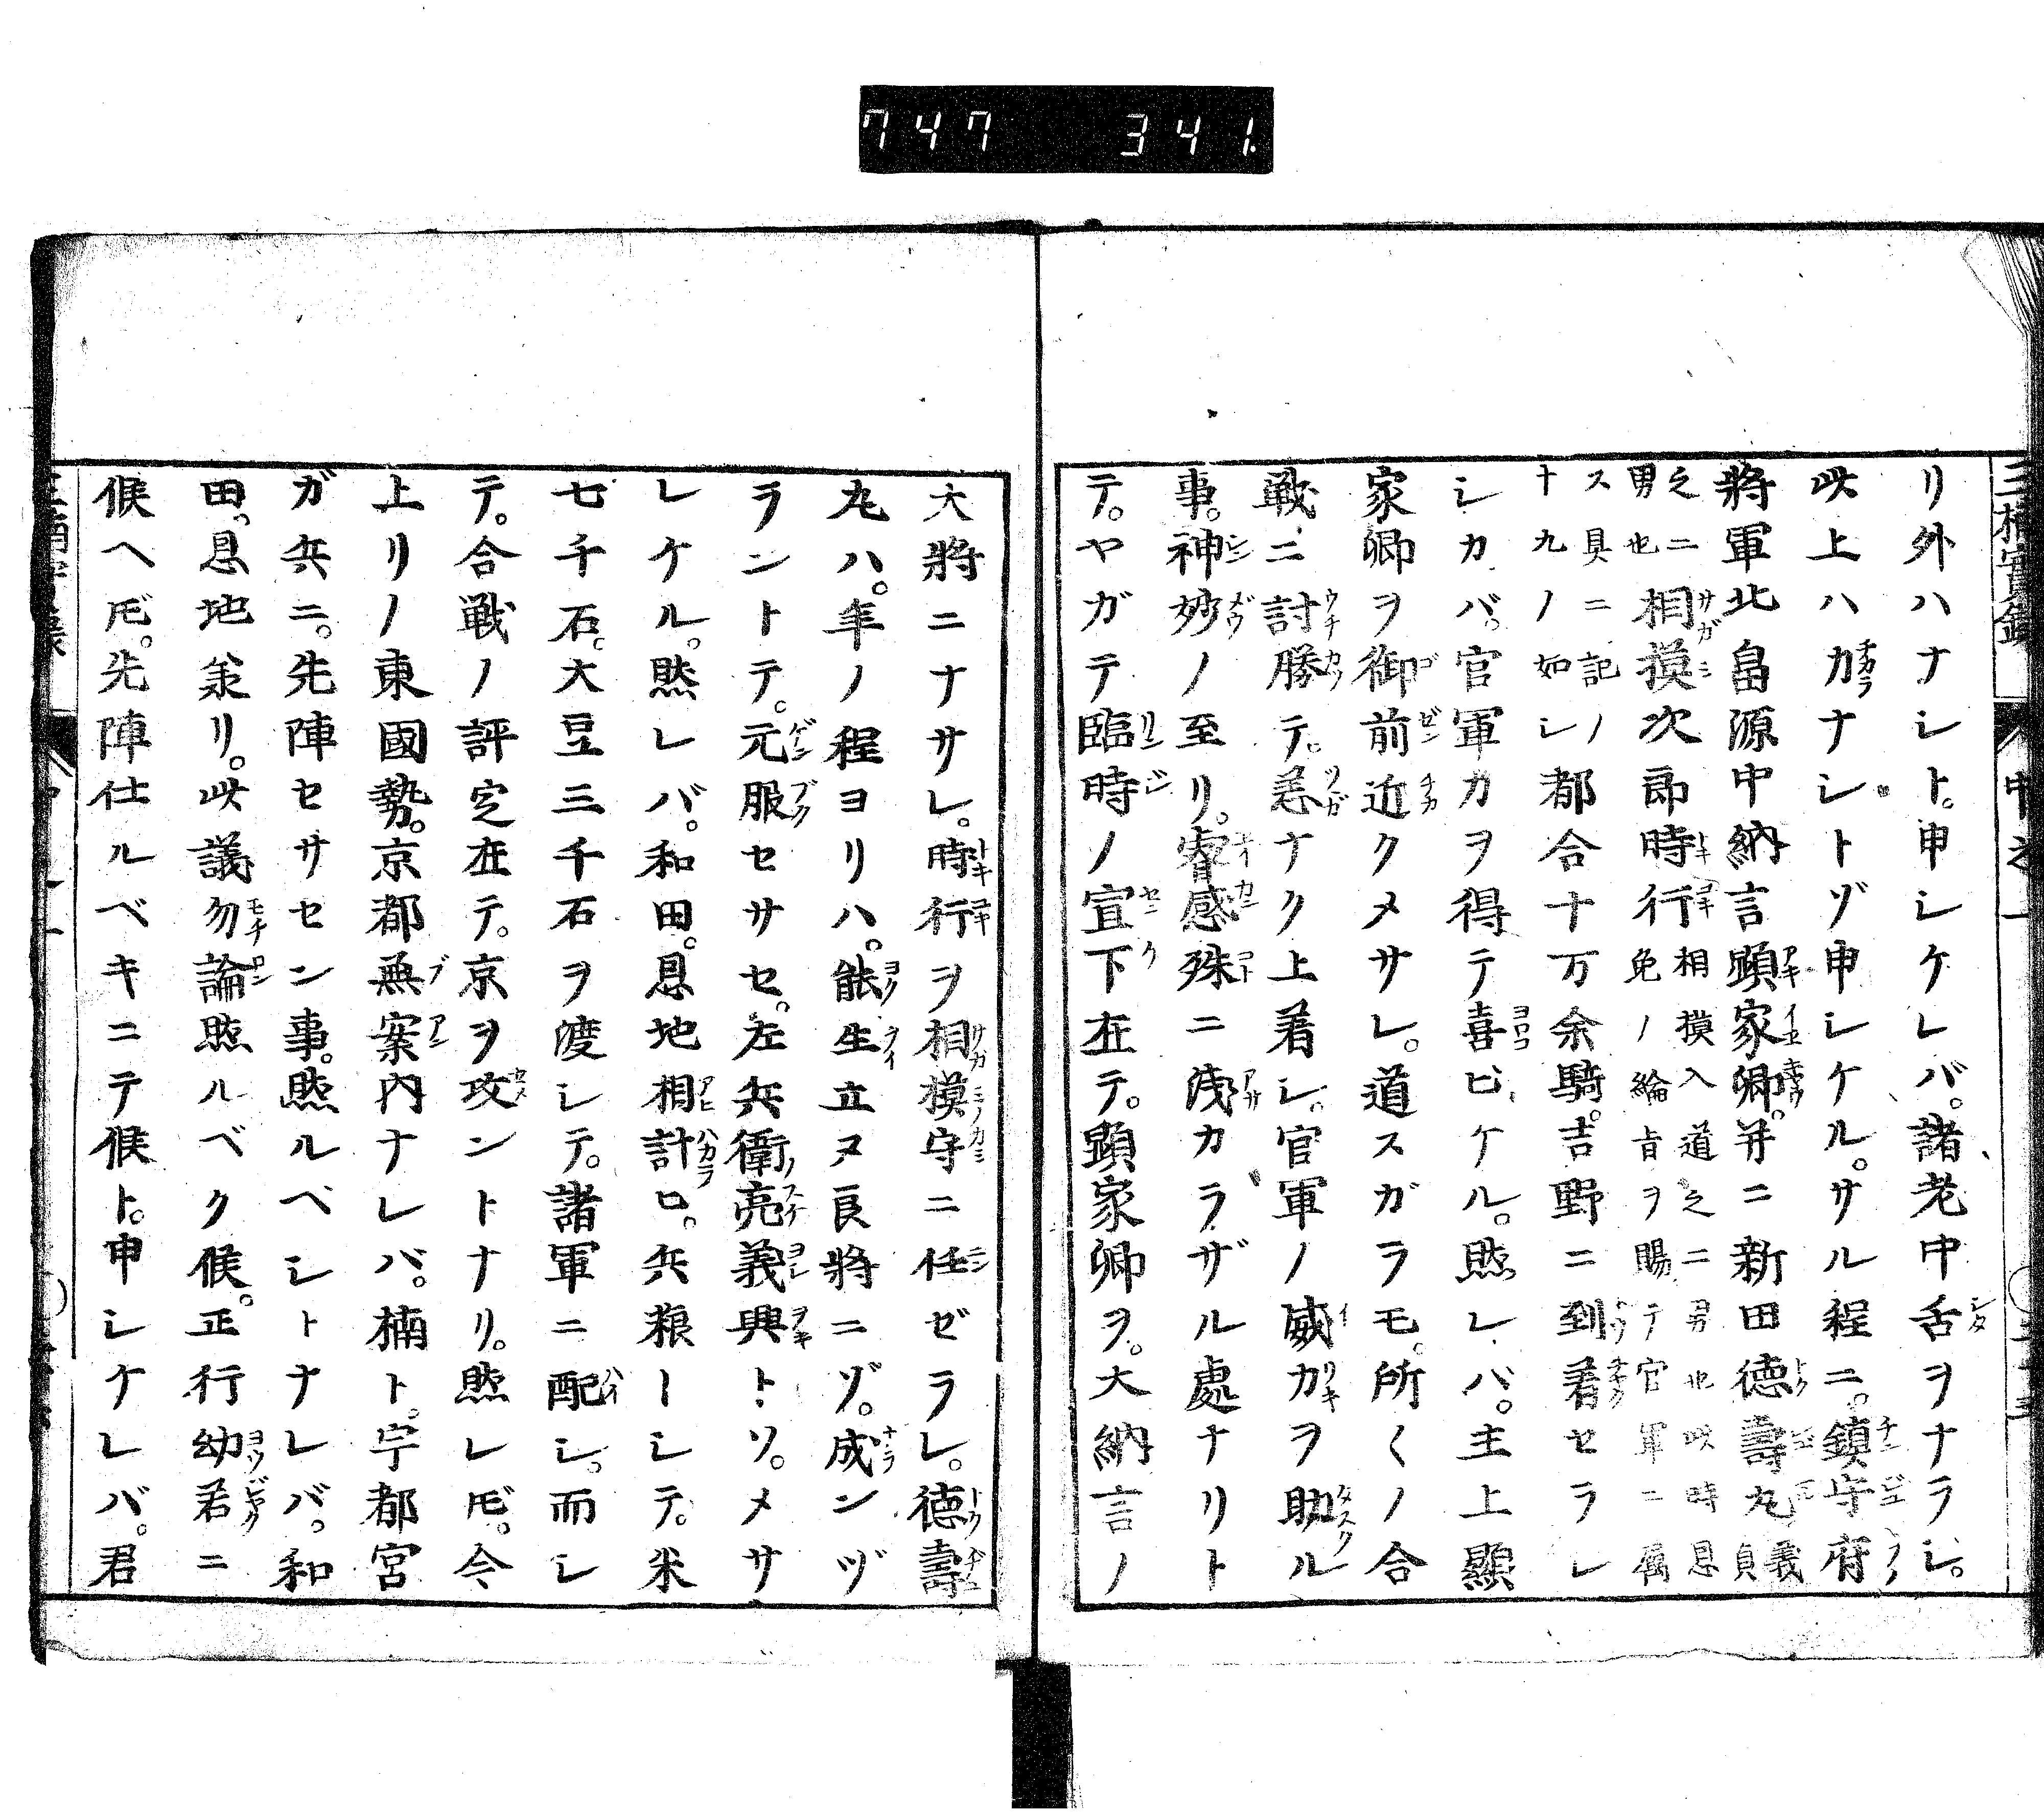 747 341.
三楠實録
リ外ハナシト。申シケレバ。諸老中舌ヲナラシ。
此上ハ力ナシトゾ申シケル。サル程ニ。鎮守府
将軍北畠源中納言顕家卿。并ニ新田徳壽丸義貞
之二男也相摸次郎時行相摸入道之二男也此時恩免ノ綸旨ヲ賜テ官軍ニ属
ス具ニ記ノ十九ノ如シ都合十万余騎。吉野ニ到着セラレ
シカバ。官軍力ヲ得テ喜ビケル。然レバ。主上顯
家卿ヲ御前近クメサレ。道スガラモ。所〱ノ合
戦ニ討勝テ。恙ナク上着シ。官軍ノ威力ヲ助ル
事。神妙ノ至リ。睿感殊ニ浅カラザル處ナリト
テ。ヤガテ臨時ノ宣下在テ。顕家卿ヲ。大納言ノ
大将ニナサレ。時行ヲ相模守ニ任ゼラレ。徳壽
丸ハ。年ノ程ヨリハ。能生立ヌ良将ニゾ。成ンヅ
ラントテ。元服セサセ。左兵衛亮義興トソ。メサ
レケル。然レバ。和田。恩地相計ヒ。兵粮ーシテ。米
七千石。大豆三千石ヲ渡シテ。諸軍ニ配シ。而シ
テ。合戦ノ評定在テ。京ヲ攻ントナリ。然レ𪜈。今
上リノ東國勢。京都無案内ナレバ。楠ト。宇都宮
ガ兵ニ。先陣セサセン事。然ルベシトナレバ。和
田。恩地参リ。此議勿論然ルベク候。正行幼若ニ
候ヘ𪜈。先陣仕ルベキニテ候ト。申シケレバ。君